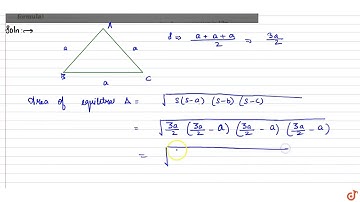 formula)
Soln:→
A
a
a
B
a
C
S ⇒ a + a + a / 2 ⇒ 3a / 2
Area of equilateral Δ = √ S(S-a) (S-b) (S-c)
= √ 3a/2 (3a/2 - a) (3a/2 - a) (3a/2 - a)
= √